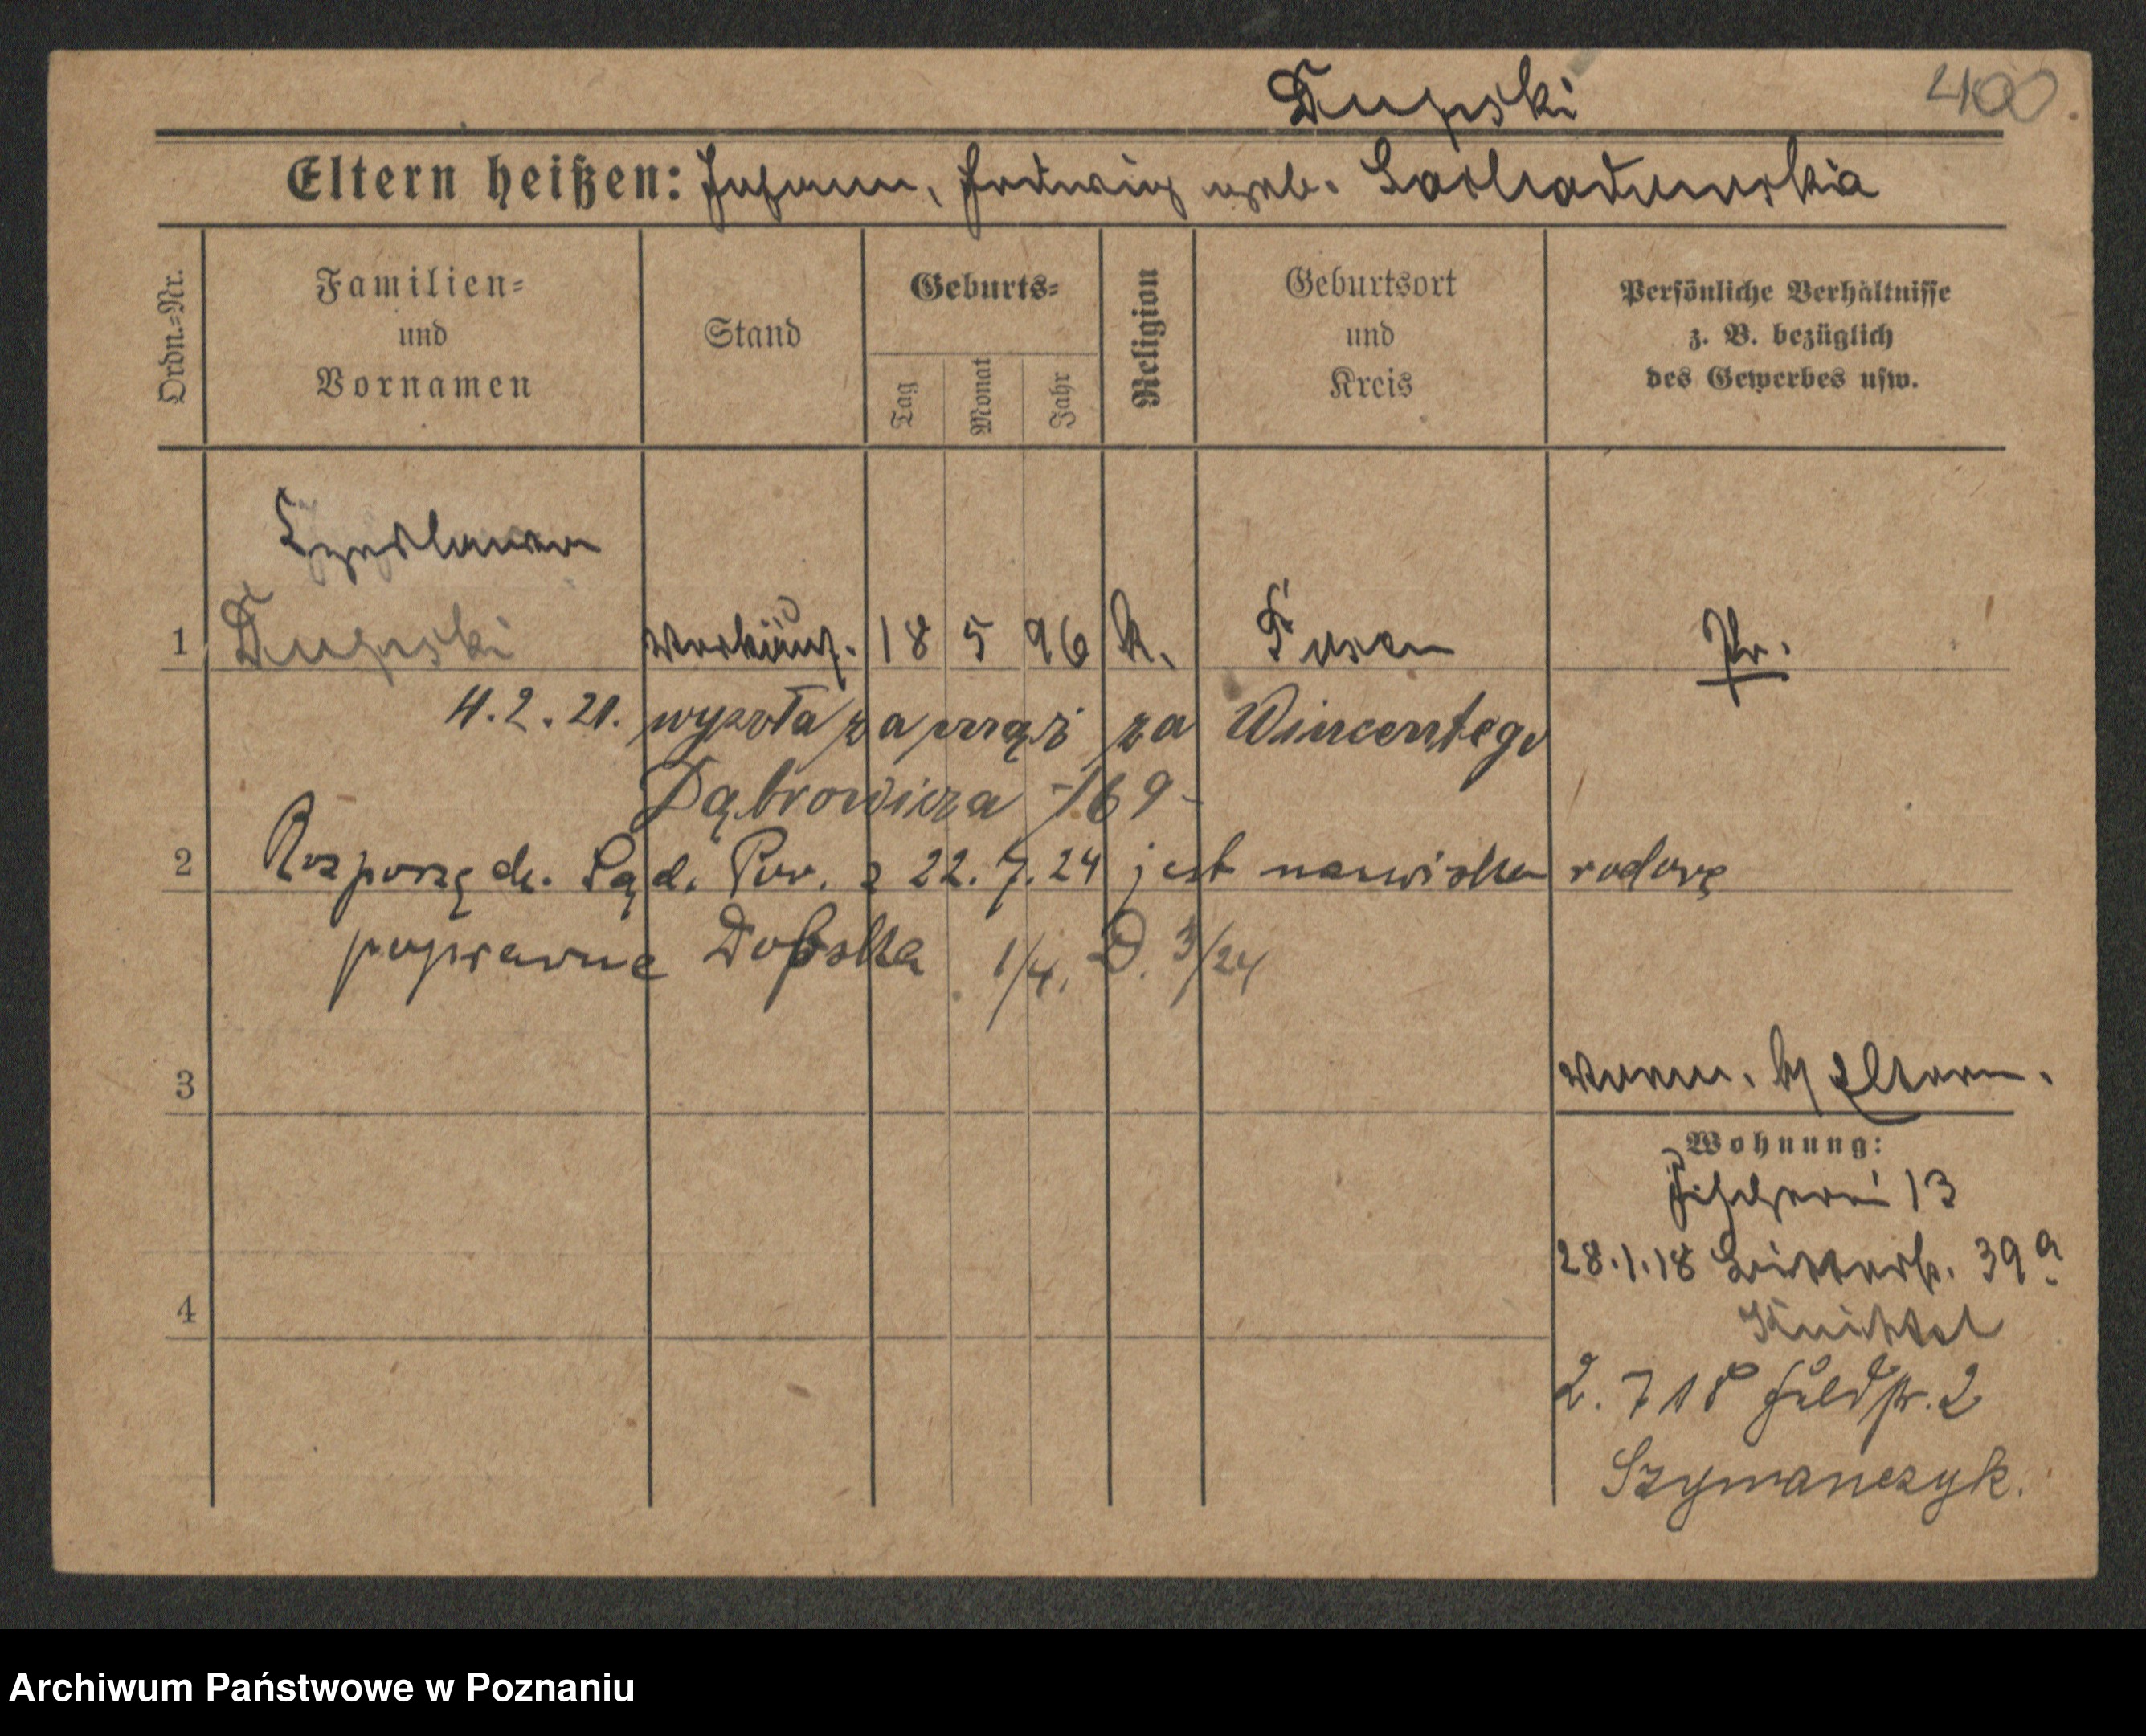 Dupski
400
Eltern heißen: Johann, Hedwig geb. Lochadunska
Ordn.=Nr.
Familien=
und
Vornamen
Stand
Geburts=
Tag
Monat
Jahr
Religion
Geburtsort
und
Kreis
Persönliche Verhältnisse
z. B. bezüglich
des Gewerbes usw.
Czeslawa
1 Dupski Verkäuf. 18 5 96 k. Posen Pr.
4.2.21. wyszła za mąż za Wincentego
Dąbrowicza -/69-
2 Rozporządz. Sąd. Pow. z 22.7.24 jest nazwisko rodowe
poprawne Dobska 1/4. D. 3/24
3
b/ Eltern.
Wohnung:
Fischerei 13
28.1.18 39a
4
2. 7 18 Feldstr. 2
Szymanczyk.
Archiwum Państwowe w Poznaniu